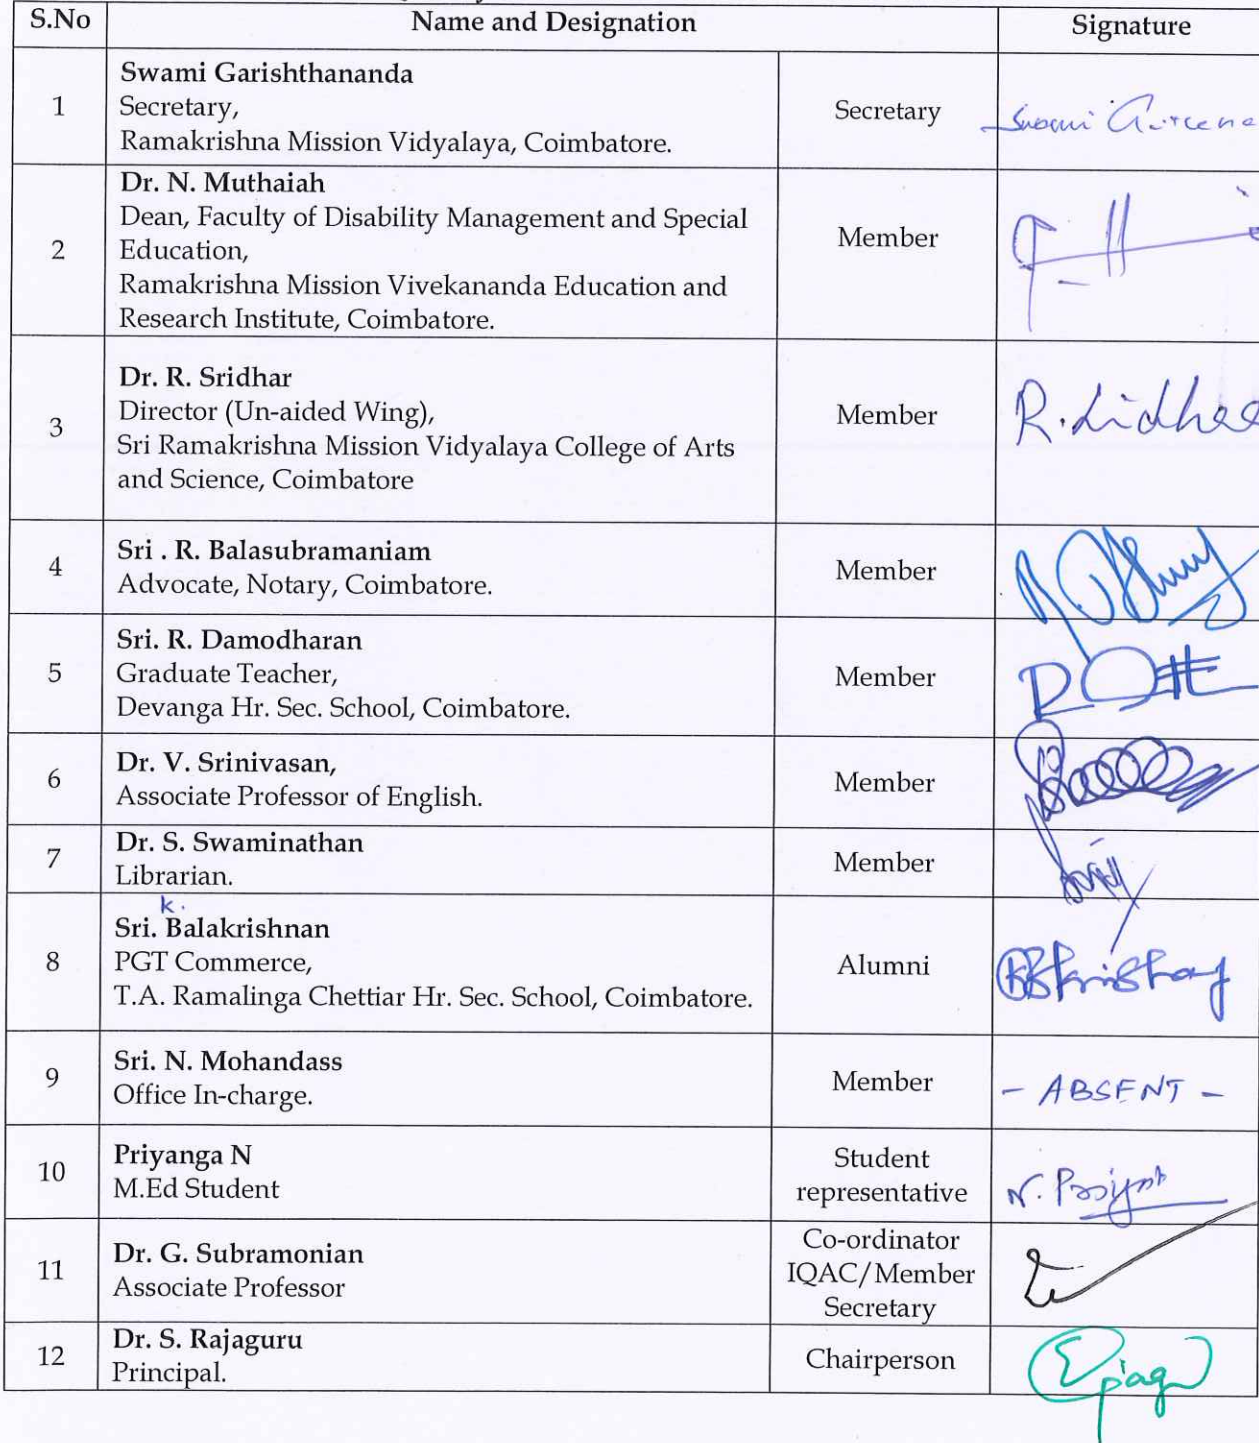 S.No Name and Designation Signature
1 Swami Garishthananda
Secretary,
Ramakrishna Mission Vidyalaya, Coimbatore.
Secretary
Swami
2 Dr. N. Muthaiah
Dean, Faculty of Disability Management and Special
Education,
Ramakrishna Mission Vivekananda Education and
Research Institute, Coimbatore.
Member
3 Dr. R. Sridhar
Director (Un-aided Wing),
Sri Ramakrishna Mission Vidyalaya College of Arts
and Science, Coimbatore
Member
R.
4 Sri . R. Balasubramaniam
Advocate, Notary, Coimbatore.
Member
5 Sri. R. Damodharan
Graduate Teacher,
Devanga Hr. Sec. School, Coimbatore.
Member
6 Dr. V. Srinivasan,
Associate Professor of English.
Member
7 Dr. S. Swaminathan
Librarian.
Member
k.
8 Sri. Balakrishnan
PGT Commerce,
T.A. Ramalinga Chettiar Hr. Sec. School, Coimbatore.
Alumni
9 Sri. N. Mohandass
Office In-charge.
Member
- ABSENT -
10 Priyanga N
M.Ed Student
Student
representative
N.
11 Dr. G. Subramonian
Associate Professor
Co-ordinator
IQAC/Member
Secretary
12 Dr. S. Rajaguru
Principal.
Chairperson